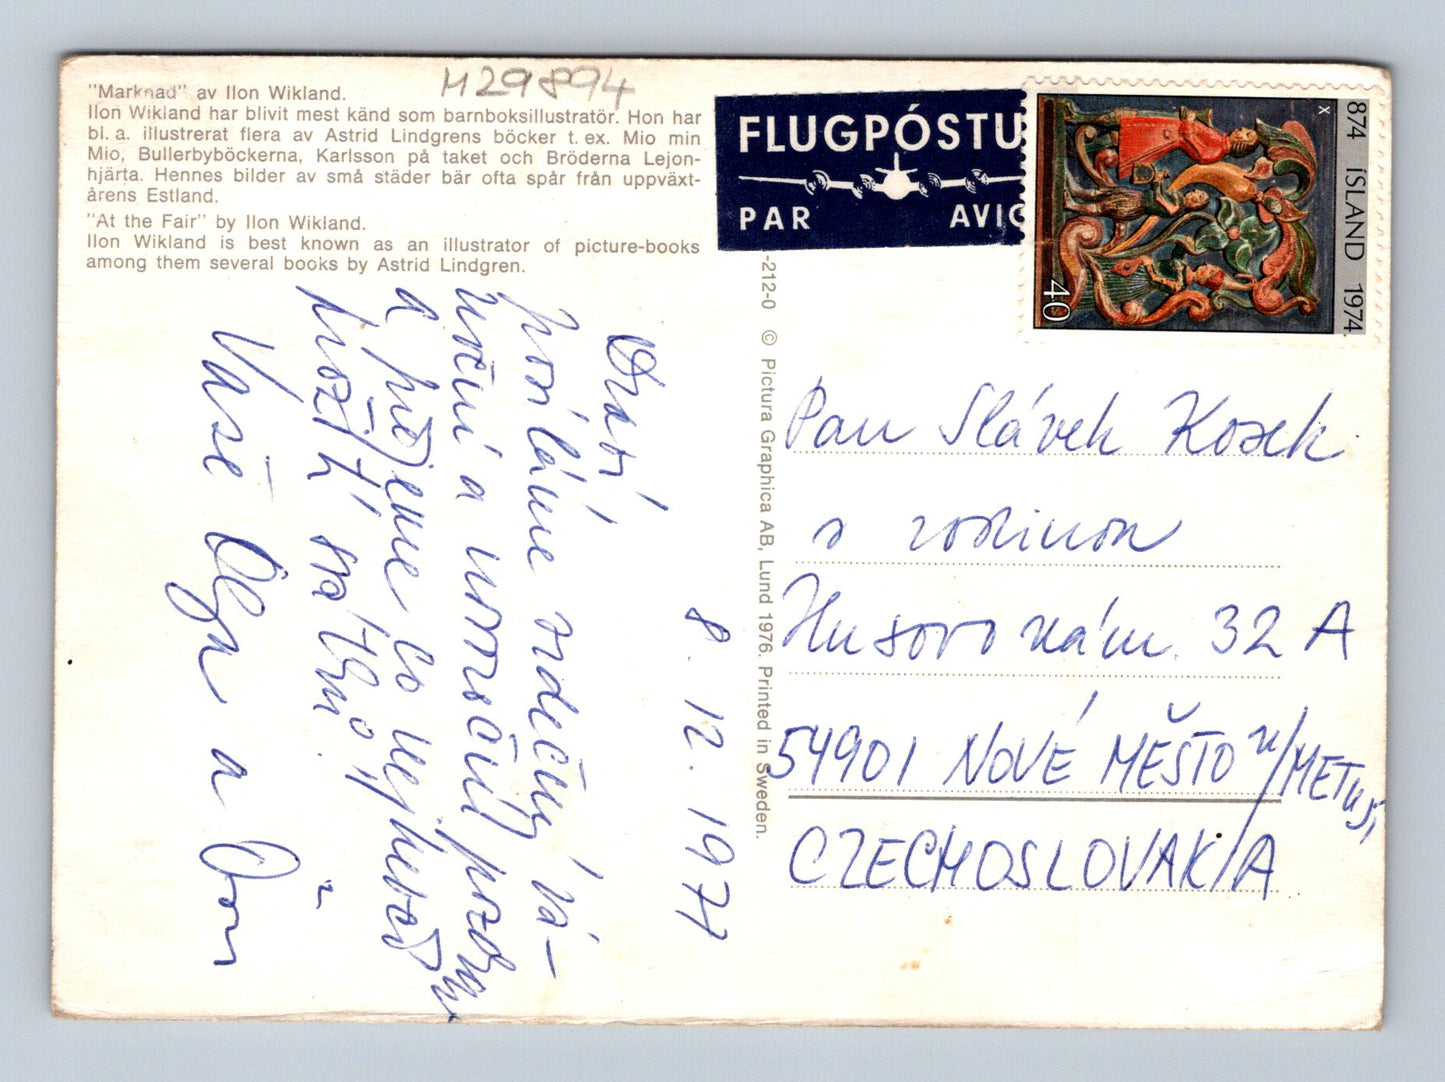 H29894
"Marknad" av Ilon Wikland.
Ilon Wikland har blivit mest känd som barnboksillustratör. Hon har
bl. a. illustrerat flera av Astrid Lindgrens böcker t. ex. Mio min
Mio, Bullerbyböckerna, Karlsson på taket och Bröderna Lejon-
hjärta. Hennes bilder av små städer bär ofta spår från uppväxt-
årens Estland.
"At the Fair" by Ilon Wikland.
Ilon Wikland is best known as an illustrator of picture-books
among them several books by Astrid Lindgren.
FLUGPÓSTU
PAR AVIO
874 ÍSLAND 1974
X
40
-212-0 © Pictura Graphica AB, Lund 1976. Printed in Sweden.
8. 12. 1977
Drazí
posíláme srdečný vá-
noční a novoroční pozdrav
a přejeme co nejhezčí
prožití svátků.
Vaše Olga a
Pan Slávek Kosek
s rodinou
Husovo nám. 32 A
54901 NOVÉ MĚSTO n/METUJÍ
CZECHOSLOVAKIA